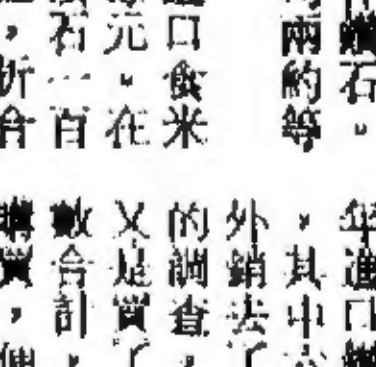 石。
兩約等
口食米
元。在
石一百
,折合
年進口
,其中
外銷去了
的調查,
又是買了
數合計,
購買,